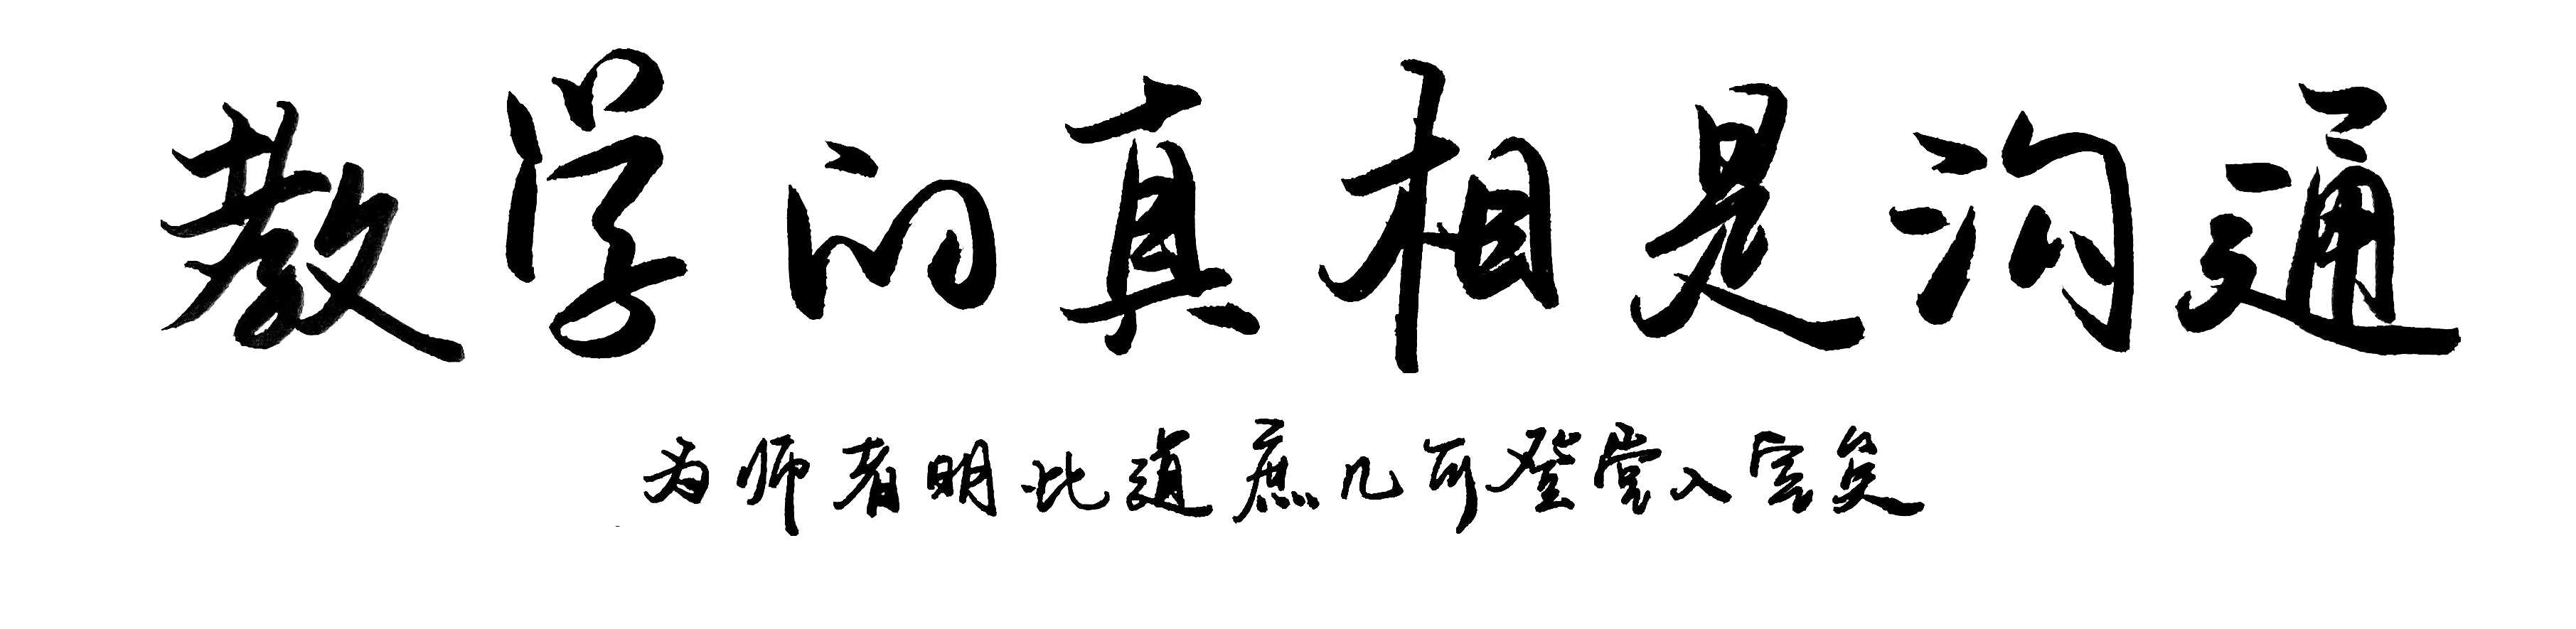 教学的真相是沟通
为师者明此道庶几可登堂入室矣